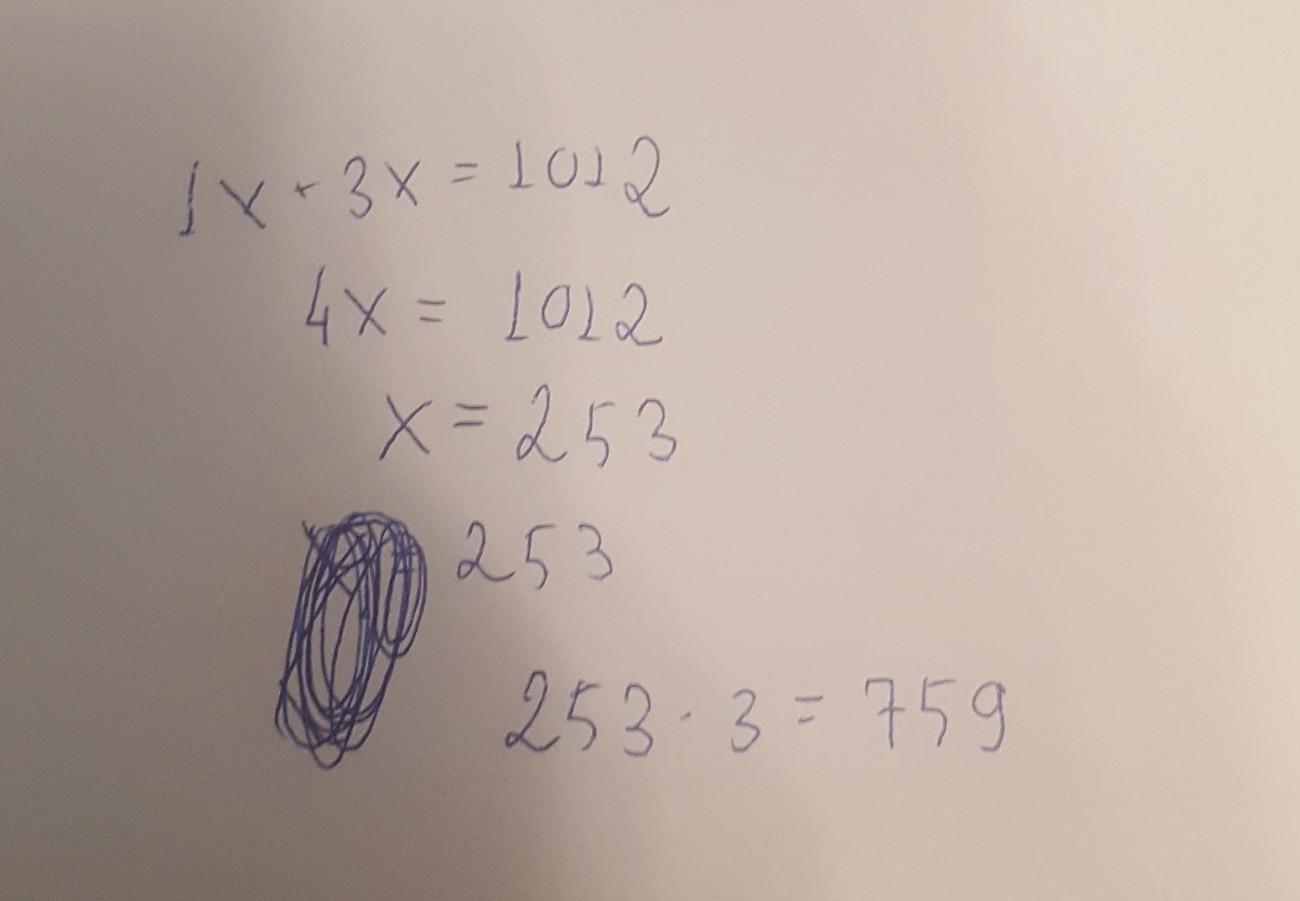 1x + 3x = 1012
4x = 1012
x = 253
253
253 · 3 = 759